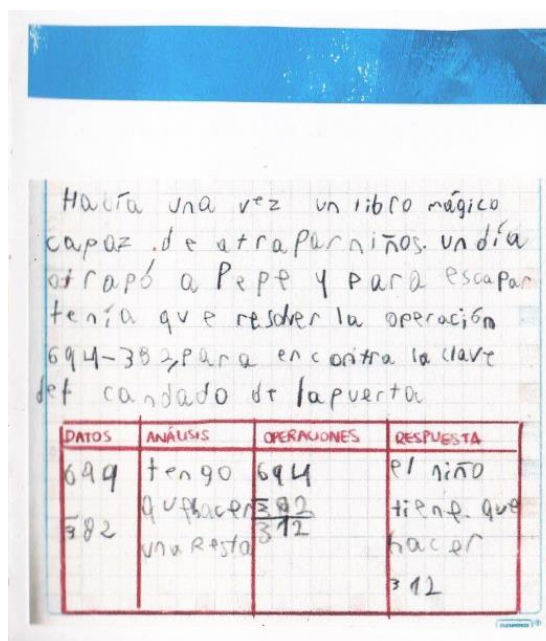 Había una vez un libro mágico
capaz de atrapar niños. un día
atrapó a Pepe y para escapar
tenía que resolver la operación
694-382, para encontra la clave
del candado de la puerta
DATOS ANÁLISIS OPERACIONES RESPUESTA
694 tengo 694 el niño
-382 que hacer -382 tiene que
una Resta 312 hacer
312